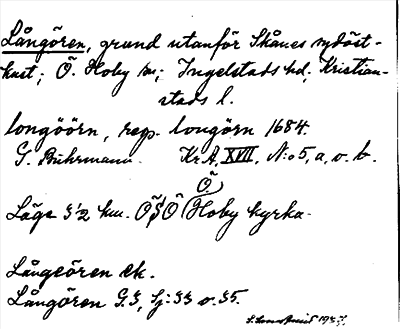 Långören, grund utanför Skånes sydöst-
kust; Ö. Hoby sn; Ingelstads hd, Kristian-
stads l.
longöörn, resp. longörn 1684.
G. Buhrmann. Kr.A, XVII, N:o 5, a, o. b.
Ö.
Läge 3 1/2 km. OSO Hoby kyrka.
Långeören ek.
Långören G.3, Sj: 33 o. 35.
1937.